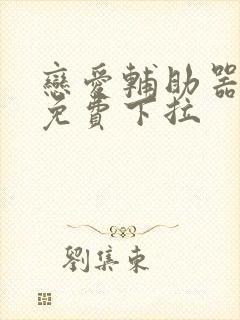 戀愛輔助器
免費下拉
劉集東